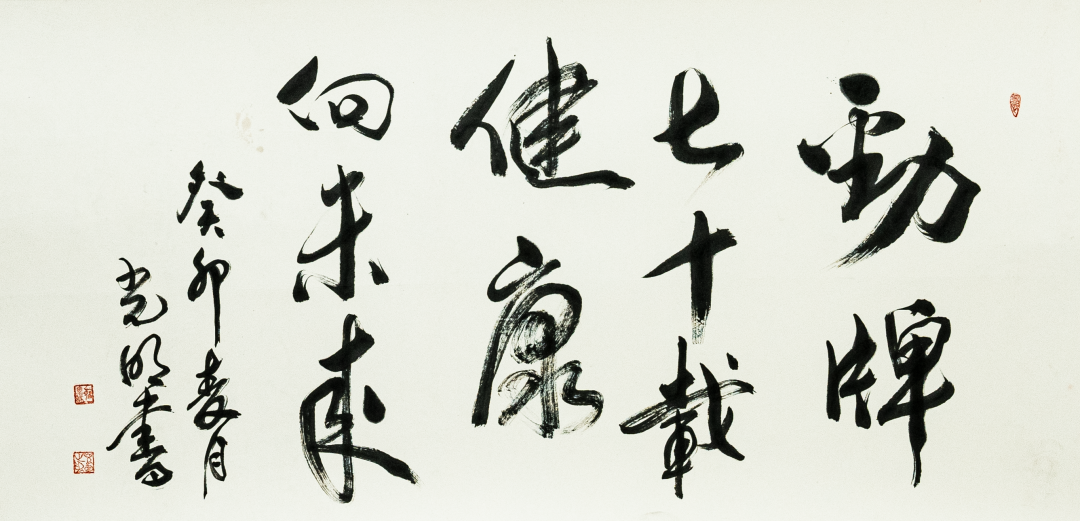 劲牌
七十載
健康
向未来
癸卯麦月
光明書